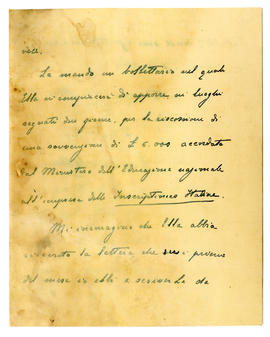 vole.
La mando un bollettario nel quale
Ella si compiacerà di apporre, ai luoghi
segnati due firme, per la riscossione di
una sovvenzione di £ 6.000 accordata
dal Ministero dell'Educazione nazionale
all'impresa delle Inscriptiones Italiae
Mi immagino che Ella abbia
ricevuto la lettera che nei primi
del mese io ebbi a scriverLe da